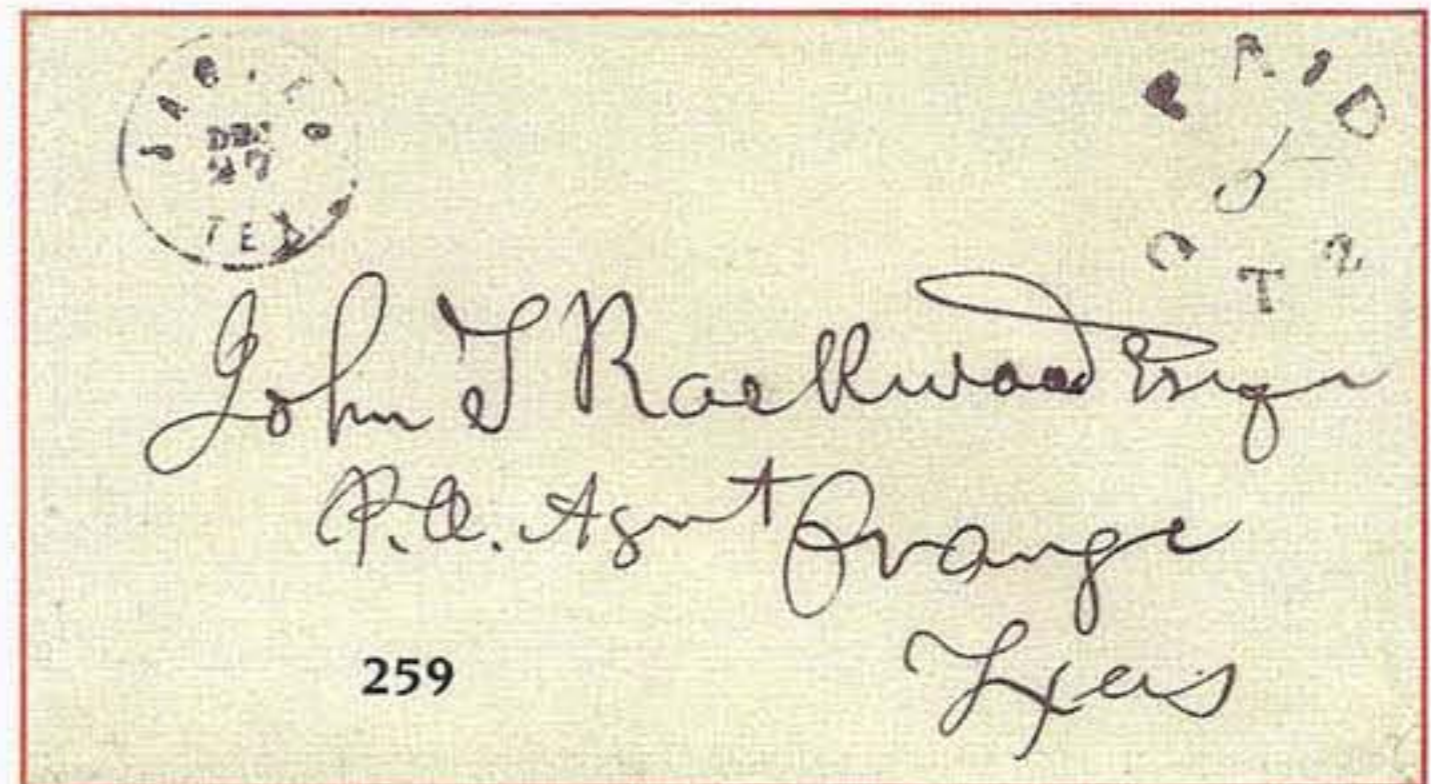 DEC
27
TEX
PAID
5
CTS
John T Rockwood Esqr
Agent Orange
Texas
259